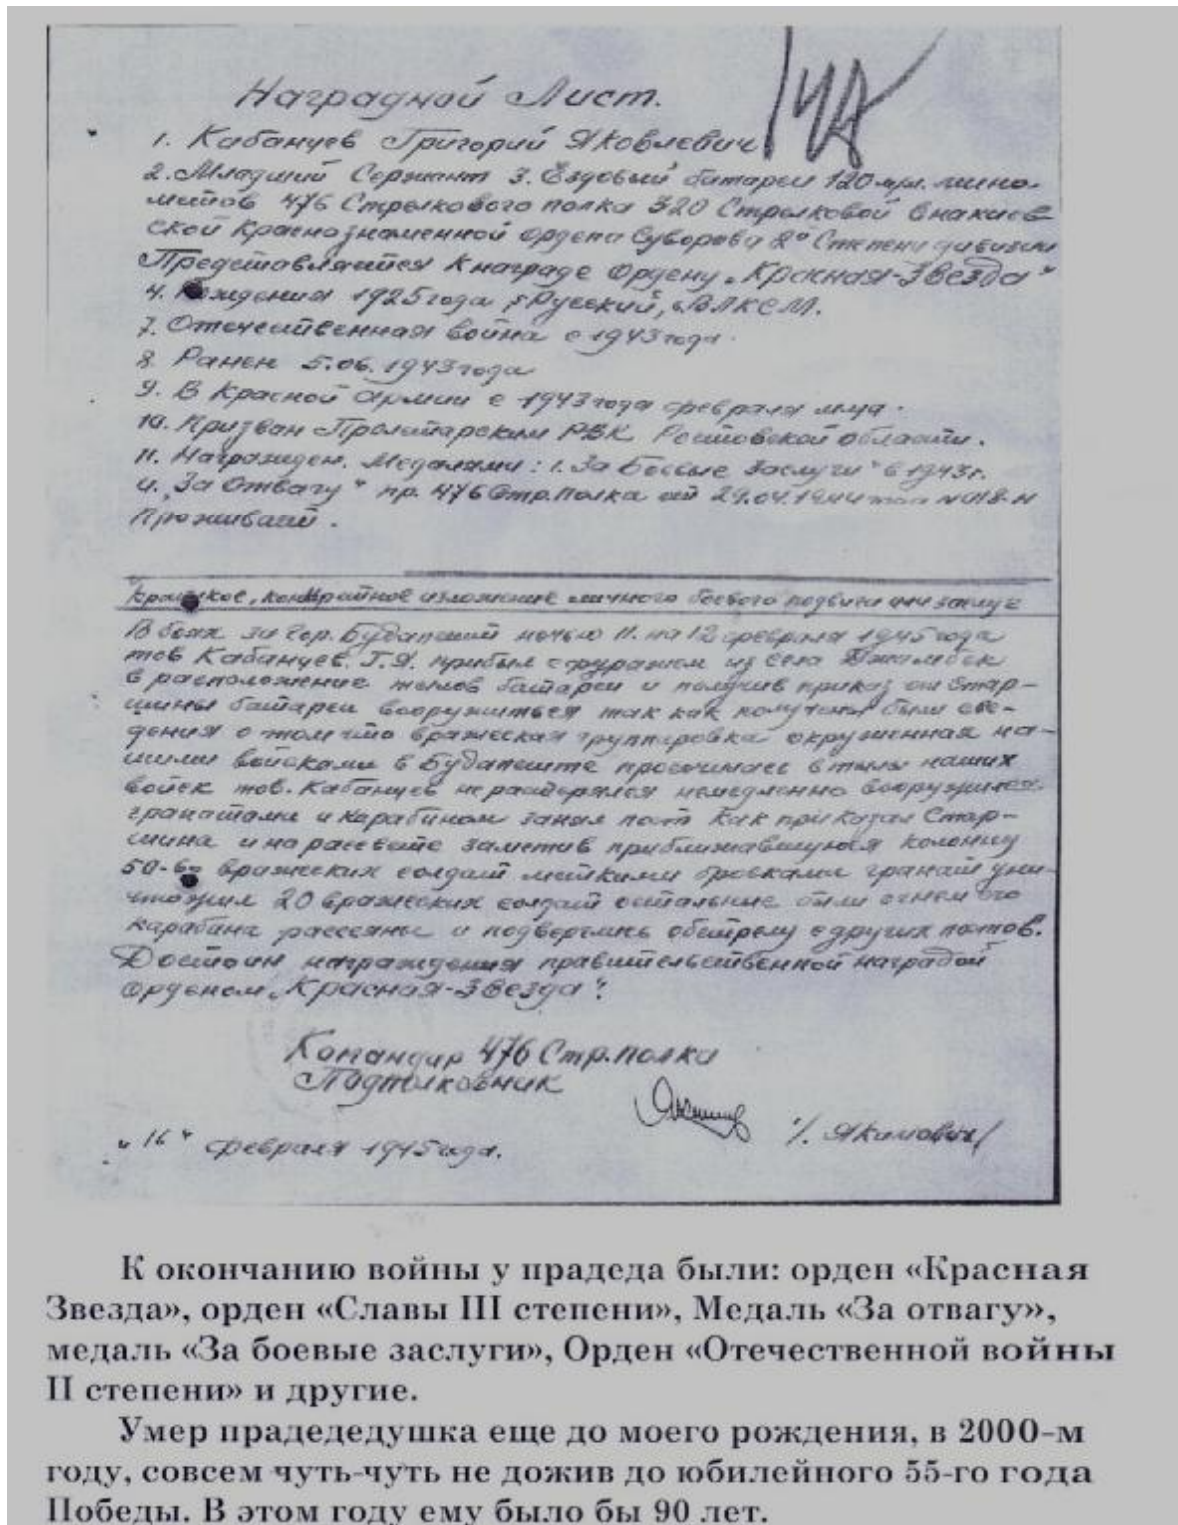 147
Наградной Лист.
1. Кабанцев Григорий Яковлевич
2. Младший Сержант 3. Ездовый батареи 120 м/м. мино-
метов 476 Стрелкового полка 320 Стрелковой Енакиев
ской Краснознаменной ордена Суворова 2º Степени дивизии
Представляется К награде Ордену „Красная-Звезда"
4. Рождения 1925 года, Русский, ВЛКСМ.
7. Отечественная война с 1943 года.
8. Ранен 5.06.1943 года
9. В Красной Армии с 1943 года февраля м-ца.
10. Призван Пролетарским РВК Ростовской области.
11. Награжден. Медалями: 1. За Боевые Заслуги" в 1943 г.
и „За Отвагу" пр. 476 Стр. Полка от 29.04.1944 года № 018-Н
Проживает.
Краткое, конкретное изложение личного боевого подвига или заслуг
В боях за гор. Будапешт ночью 11. на 12 февраля 1945 года
тов Кабанцев. Г.Я. прибыл с фуражем из села Джамбек
в расположение тылов батареи и получив приказ от Стар-
шины батареи вооружиться так как получены были све-
дения о том что вражеская группировка окруженная на-
шими войсками в Будапеште просочилась в тылы наших
войск тов. Кабанцев не растерялся немедленно вооружился
гранатами и карабином занял пост Как приказал Стар-
шина и на рассвете заметив приближавшуюся колонну
50-60 вражеских солдат меткими бросками гранат уни-
чтожил 20 вражеских солдат остальные были огнем его
карабина рассеяны и подверглись обстрелу с других постов.
Достоин награждения правительственной наградой
Орденом „Красная-Звезда".
Командир 476 Стр. полка
Подполковник
/Якимович/
„16" февраля 1945 года.
К окончанию войны у прадеда были: орден «Красная
Звезда», орден «Славы III степени», Медаль «За отвагу»,
медаль «За боевые заслуги», Орден «Отечественной войны
II степени» и другие.
Умер прадедедушка еще до моего рождения, в 2000-м
году, совсем чуть-чуть не дожив до юбилейного 55-го года
Победы. В этом году ему было бы 90 лет.